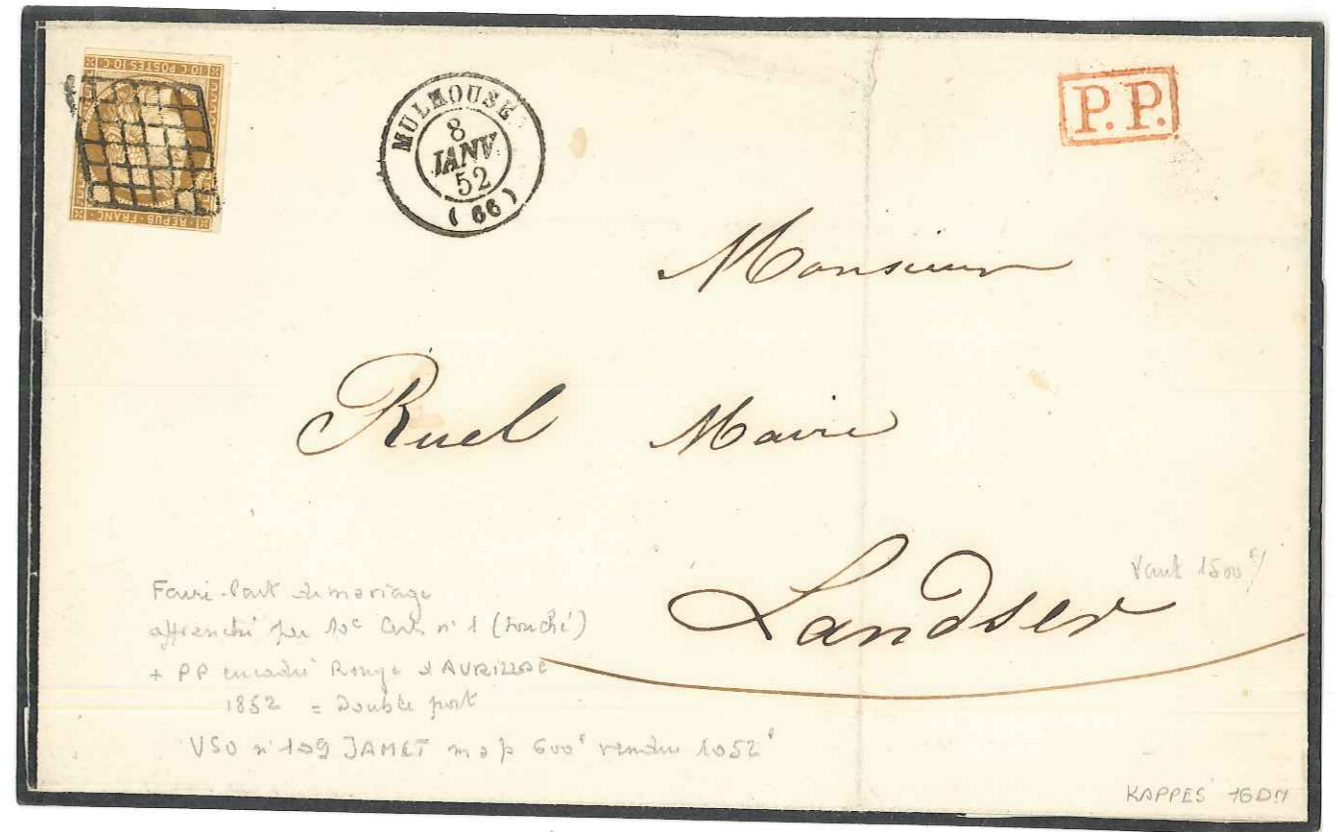 10·C·POSTES·10·C
REPUB·FRANC
MULHOUSE
8
JANV.
52
(66)
P.P.
Monsieur
Ruel Maire
Landser
Vaut 1500 €
Faire-Part de mariage
affranchi par 10c Cérès n° 1 (touché)
+ PP encadré Rouge d'AURILLAC
1852 = Double port
VSO n° 109 JAMET m à p 600€ vendu 1052€
KAPPES 76DM